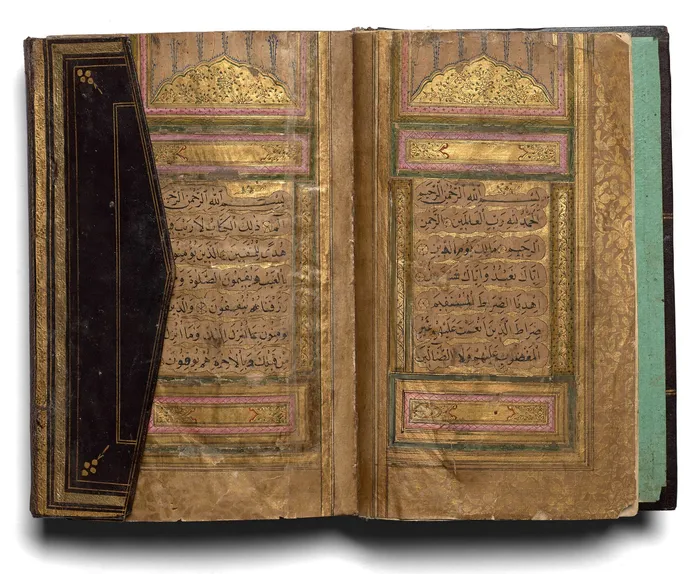 بسم الله الرحمن الرحيم
الحمد لله رب العالمين الرحمن
الرحيم مالك يوم الدين
اياك نعبد واياك نستعين
اهدنا الصراط المستقيم
صراط الذين انعمت عليهم غير
المغضوب عليهم ولا الضالين
بسم الله الرحمن الرحيم
الم ذلك الكتاب لا ريب
هدى للمتقين الذين يؤمنون
بالغيب ويقيمون الصلوة و
رزقناهم ينفقون والذين
يؤمنون بما انزل اليك وما انزل
من قبلك وبالاخرة هم يوقنون